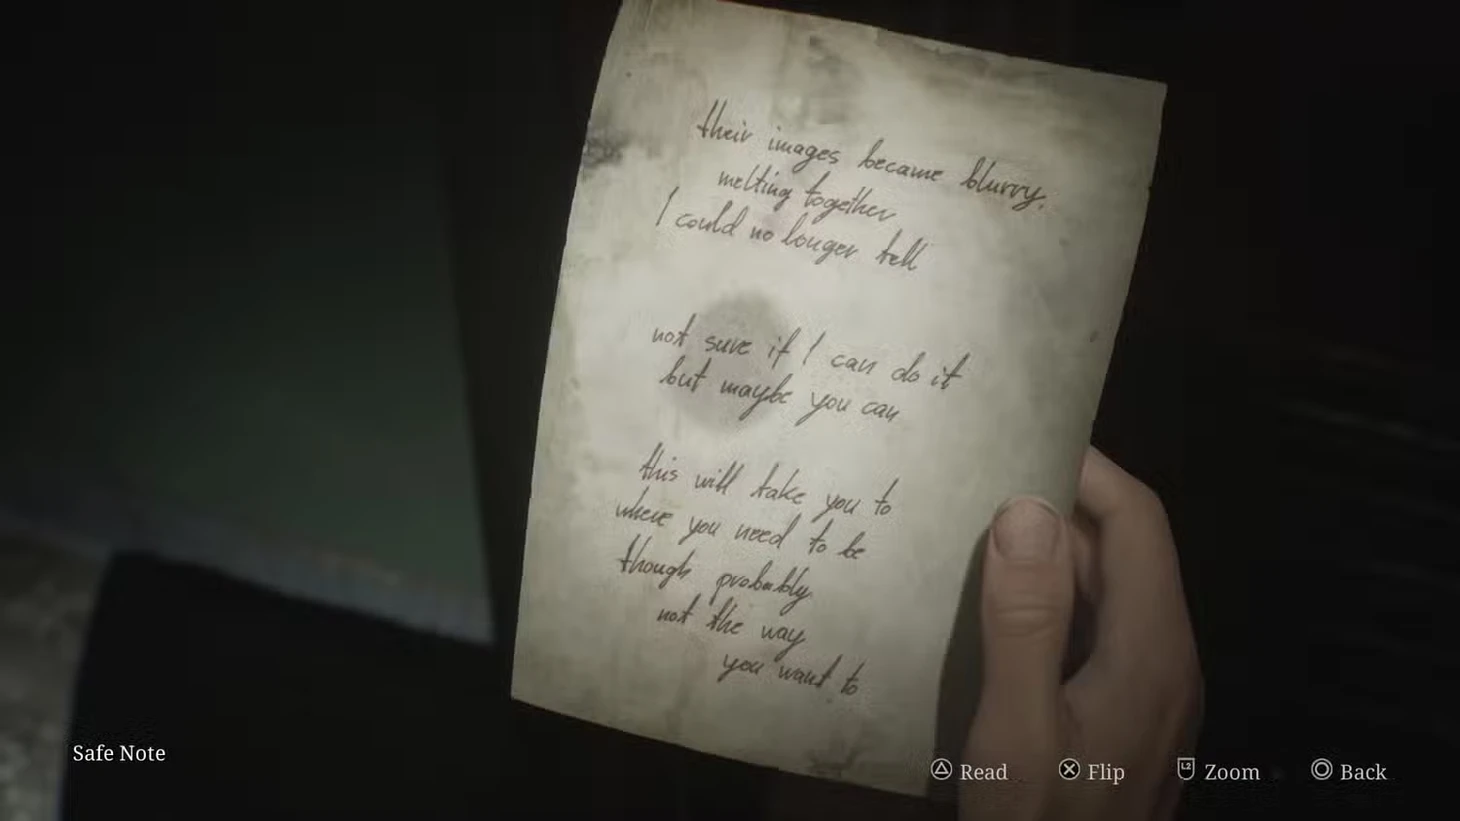 their images became blurry,
melting together
I could no longer tell
not sure if I can do it
but maybe you can
this will take you to
where you need to be
though probably
not the way
you want to
Safe Note
Read
Flip
L2
Zoom
Back